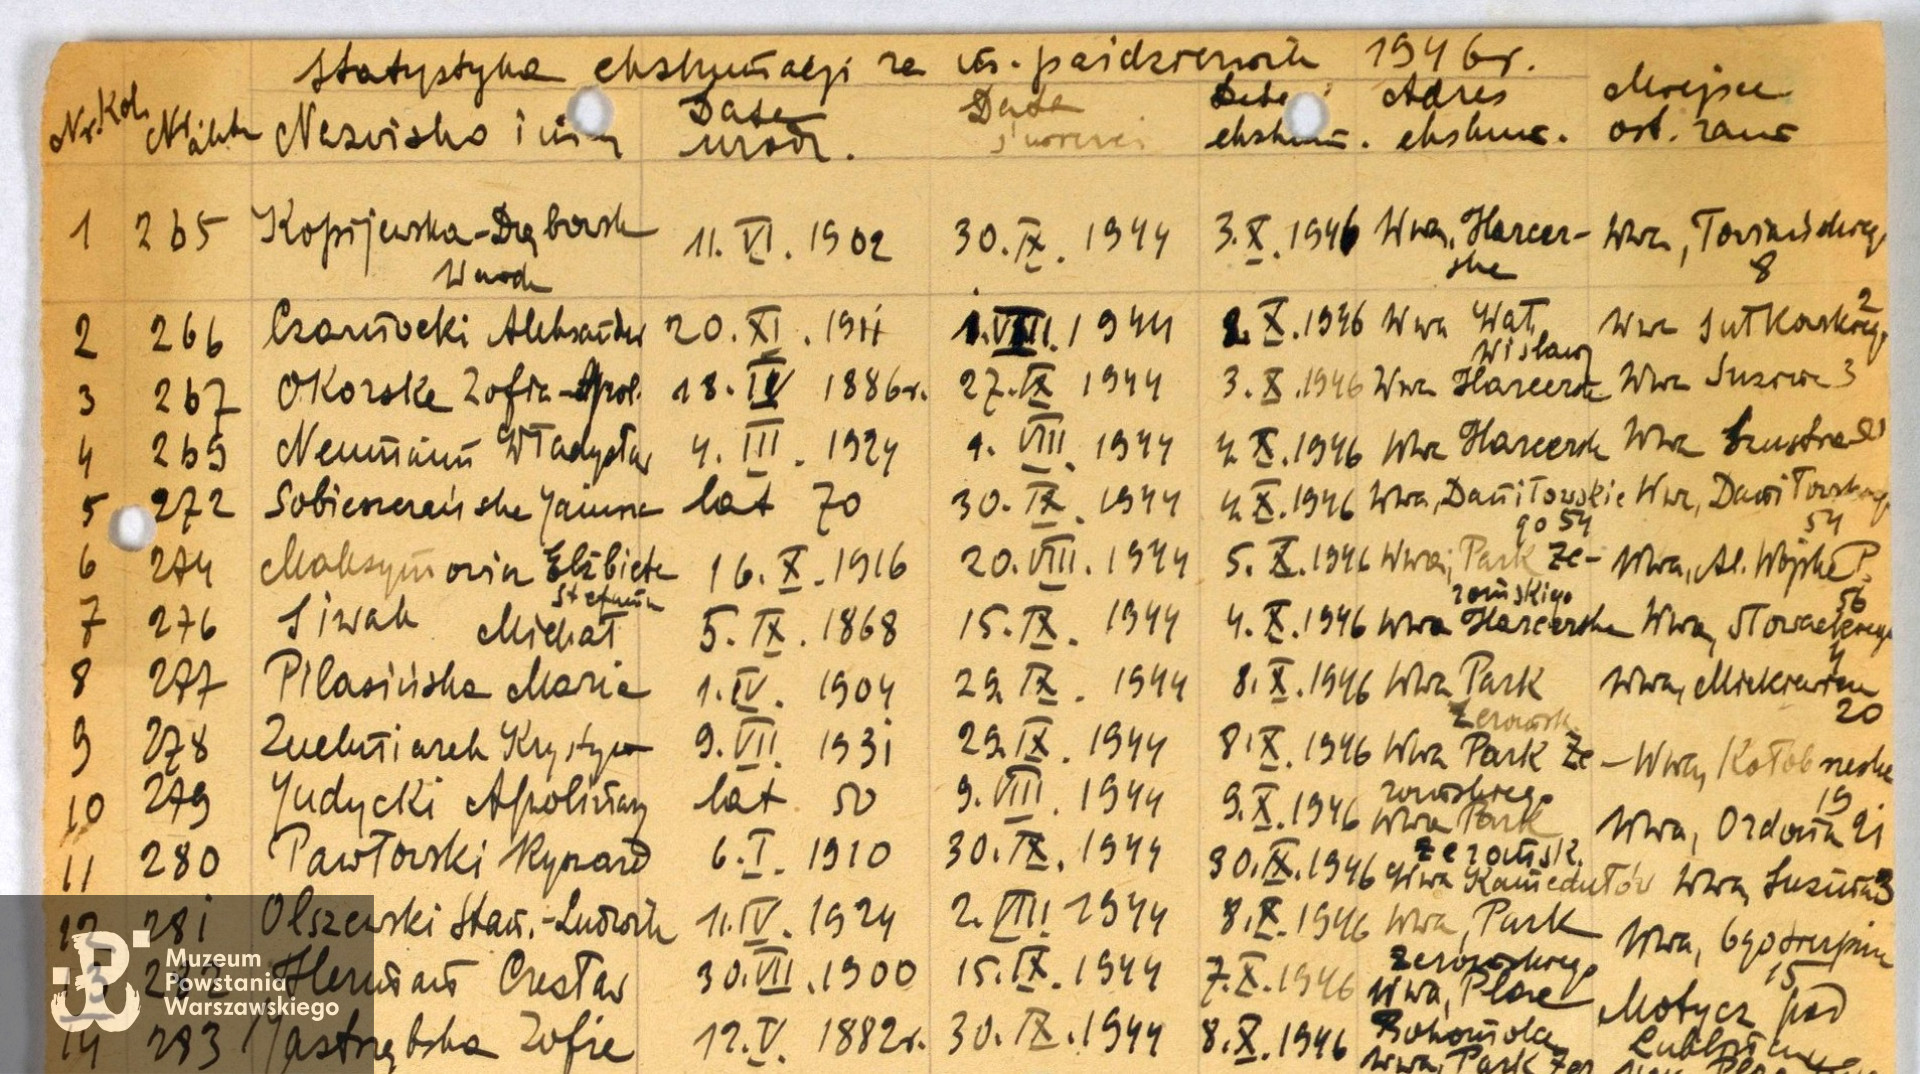 Statystyka ekshumacji za m. październik 1946r.
Nr. Kol. Nr. Nazwisko i Data urodz. Data śmierci Data ekshum. Adres ekshum. Miejsce ost. zam
1 265 Kopijewska-Dąbrowsk Wanda 11.VI.1902 30.IX.1944 3.X.1946 Wwa, Harcerska Wwa, Towiańskiego 8
2 266 Czarnocki Aleksander 20.XI.1911 1.VIII.1944 2.X.1946 Wwa Wał Wwa 2
3 267 Okorska Zofia-Apol. 18.IV 1886r. 27.IX 1944 3.X.1946 Wwa Harcersk Wwa Suzina 3
4 269 Neumann Władysław 4.III.1924 VIII.1944 4.X.1946 Wwa Harcersk Wwa
5 272 Janina lat 70 30.IX.1944 4.X.1946 Wwa, Daniłowskiego 54 Wwa, Daniłowskiego 54
6 274 Elżbieta Stefania 16.X.1916 20.VIII.1944 5.X.1946 Wwa, Park Żeromskiego Wwa, Al. Wojska P. 56
7 276 Siwak Michał 5.IX.1868 15.IX.1944 4.X.1946 Wwa Harcerska Wwa, Słowackiego 4
8 277 Pilasińska Maria 1.IV.1904 29.IX.1944 8.X.1946 Wwa Park Żeromsk Wwa, Mickiewicza 20
9 278 Krystyna 9.VII.1931 29.IX.1944 8.X.1946 Wwa Park Żeromskiego Wwa, 19
10 279 Judycki Apolinary lat 50 9.VIII.1944 9.X.1946 Wwa Park Żeromsk. Wwa, Ordona 21
11 280 Pawłowski Ryszard 6.I.1910 30.IX.1944 30.IX.1946 Wwa Kamedułów Wwa, Suzina 3
12 281 Olszewski Stan.-Ludwik 11.IV.1924 2.VIII 1944 8.X.1946 Wwa, Park Żeromskiego Wwa, 15
13 282 Herman Czesław 30.VII.1900 15.IX.1944 7.X.1946 Wwa, Motycz pod
14 283 Jastrzębska Zofia 12.V.1882r. 30.IX.1944 8.X.1946 Wwa, Park Żer
Muzeum
Powstania
Warszawskiego